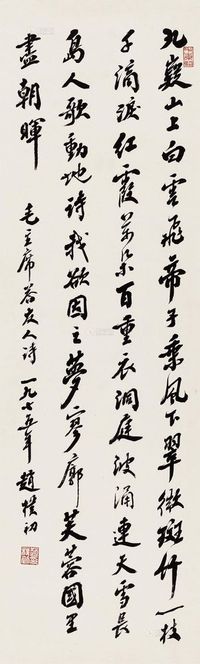 九嶷山上白雲飛帝子乘風下翠微斑竹一枝
千滴淚紅霞萬朵百重衣洞庭波涌連天雪長
島人歌動地詩我欲因之夢寥廓芙蓉國里
盡朝暉
毛主席答友人詩一九七五年趙樸初